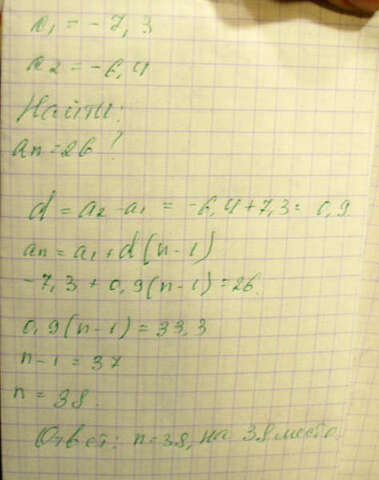 a₁ = -7,3
a₂ = -6,4
Найти:
an = 26?
d = a₂ - a₁ = -6,4 + 7,3 = 0,9
an = a₁ + d(n-1)
-7,3 + 0,9(n-1) = 26.
0,9(n-1) = 33,3
n-1 = 37
n = 38.
Ответ: n = 38, на 38 месте